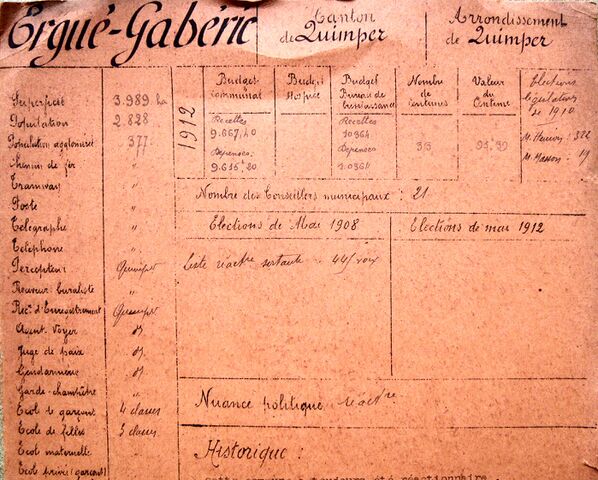 Ergué-Gabéric
Canton
de Quimper
Arrondissement
de Quimper
Superficie 3.989 ha
Population 2.828
Population agglomérée 377
Chemin de fer "
Tramway "
Poste "
Télégraphe "
Téléphone "
Percepteur Quimper
Receveur buraliste "
Rec. d'Enregistrement Quimper
Agent Voyer d°
Juge de paix d°
Gendarmerie d°
Garde-champêtre "
Ecole de garçons 4 classes
Ecole de filles 3 classes
Ecole maternelle "
Ecole privée (garçons)
1912
Budget communal
Recettes
9.667,40
Dépenses
9.615,20
Budget
Hospice
Budget
Bureau de
bienfaisance
Recettes
10364
Dépenses
10364
Nombre
de
Centimes
33
Valeur
du
Centime
91,39
Elections
législatives
de 1910
M. Hémon : 322
M. Masson : 19
Nombre des Conseillers municipaux : 21
Elections de Mai 1908
Elections de mai 1912
Liste réactre sortante : 445 voix
Nuance politique réactre
Historique :
Cette commune a toujours été réactionnaire.